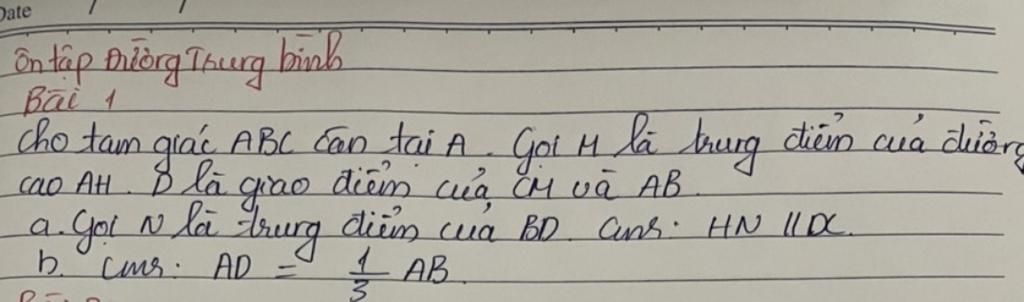 Date / /
Ôn tập Đường Trung bình
Bài 1
Cho tam giác ABC cân tại A. Gọi M là trung điểm của đường
cao AH. D là giao điểm của CM và AB.
a. Gọi N là trung điểm của BD. Cmr: HN // DC.
b. Cmr: AD = 1/3 AB.